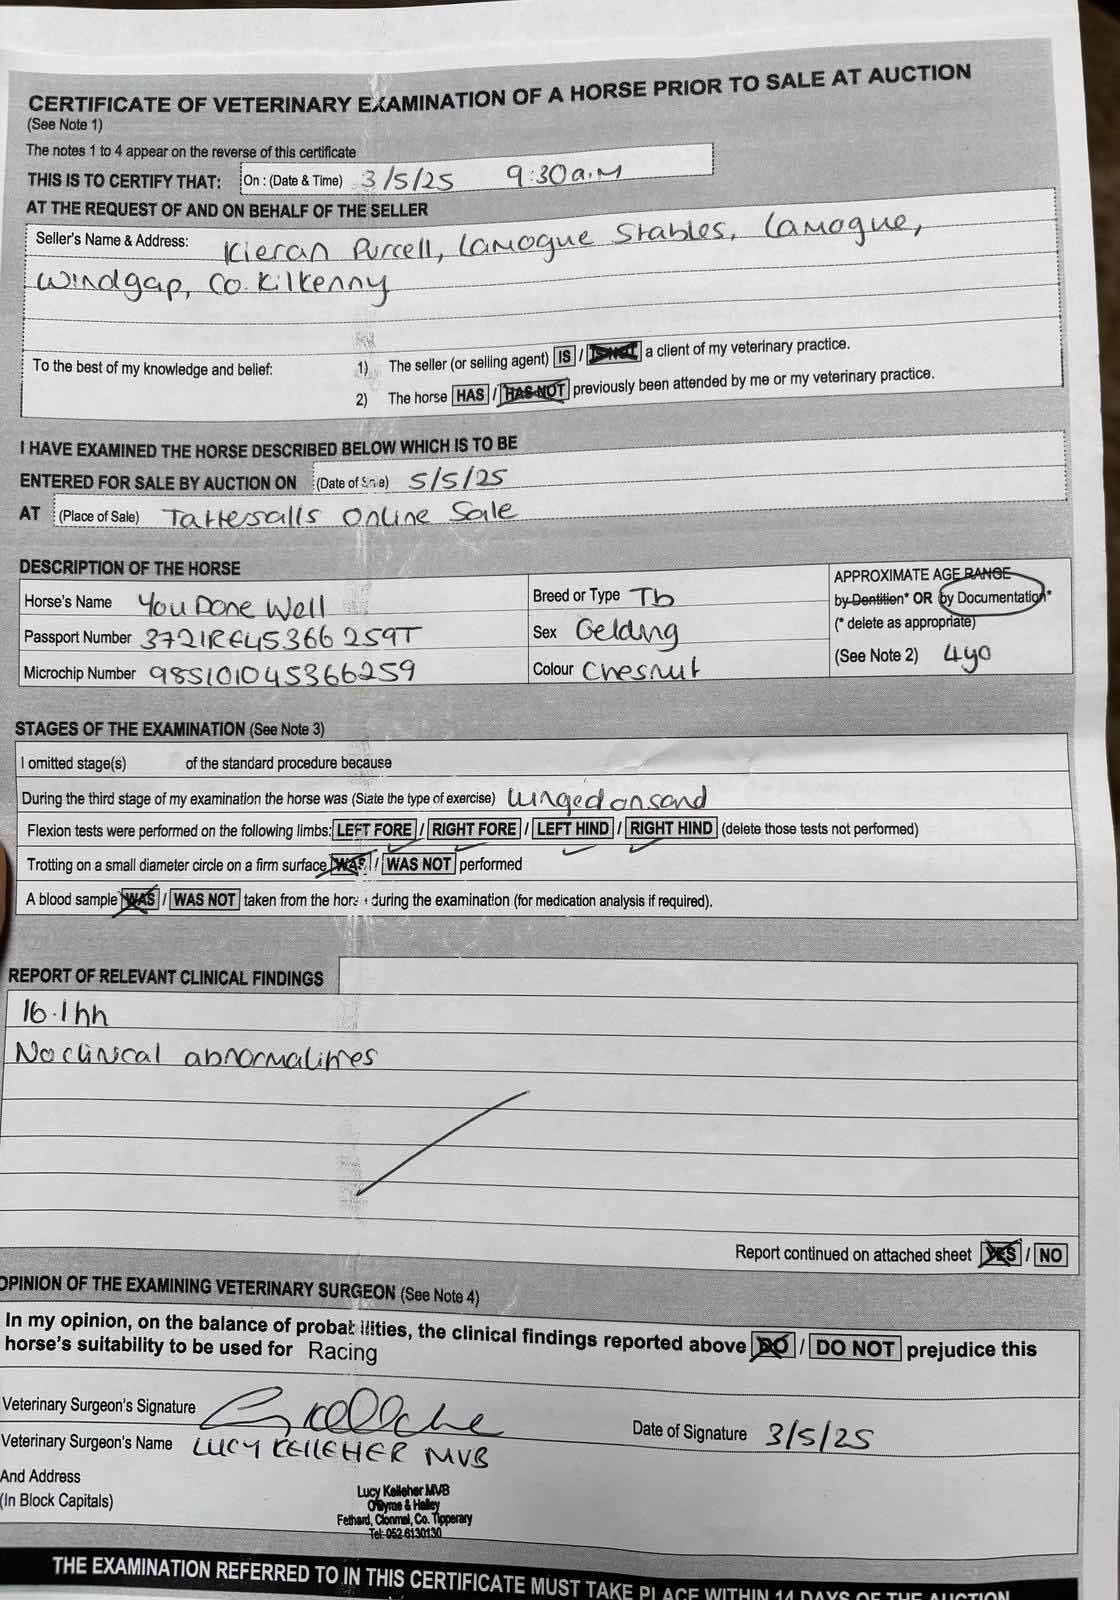 CERTIFICATE OF VETERINARY EXAMINATION OF A HORSE PRIOR TO SALE AT AUCTION
(See Note 1)
The notes 1 to 4 appear on the reverse of this certificate
THIS IS TO CERTIFY THAT: On : (Date & Time) 3/5/25 9:30a.m
AT THE REQUEST OF AND ON BEHALF OF THE SELLER
Seller's Name & Address: Kieran Purcell, Lamogue Stables, Lamogue,
Windgap, Co. Kilkenny
To the best of my knowledge and belief: 1) The seller (or selling agent) IS / IS NOT a client of my veterinary practice.
2) The horse HAS / HAS NOT previously been attended by me or my veterinary practice.
I HAVE EXAMINED THE HORSE DESCRIBED BELOW WHICH IS TO BE
ENTERED FOR SALE BY AUCTION ON (Date of Sale) 5/5/25
AT (Place of Sale) Tattersalls Online Sale
DESCRIPTION OF THE HORSE
Horse's Name You Done Well
Passport Number 372IRE45366259T
Microchip Number 985101045366259
Breed or Type Tb
Sex Gelding
Colour Chesnut
APPROXIMATE AGE RANGE
by Dentition* OR by Documentation*
(* delete as appropriate)
(See Note 2) 4yo
STAGES OF THE EXAMINATION (See Note 3)
I omitted stage(s) of the standard procedure because
During the third stage of my examination the horse was (State the type of exercise) lunged on sand
Flexion tests were performed on the following limbs: LEFT FORE / RIGHT FORE / LEFT HIND / RIGHT HIND (delete those tests not performed)
Trotting on a small diameter circle on a firm surface WAS / WAS NOT performed
A blood sample WAS / WAS NOT taken from the horse during the examination (for medication analysis if required).
REPORT OF RELEVANT CLINICAL FINDINGS
16.1hh
No clinical abnormalities
Report continued on attached sheet YES / NO
OPINION OF THE EXAMINING VETERINARY SURGEON (See Note 4)
In my opinion, on the balance of probabilities, the clinical findings reported above DO / DO NOT prejudice this
horse's suitability to be used for Racing
Veterinary Surgeon's Signature
Date of Signature 3/5/25
Veterinary Surgeon's Name LUCY KELLEHER MVB
And Address
(In Block Capitals)
Lucy Kelleher MVB
O'Byrne & Halley
Fethard, Clonmel, Co. Tipperary
Tel: 052 6130130
THE EXAMINATION REFERRED TO IN THIS CERTIFICATE MUST TAKE PLACE WITHIN 14 DAYS OF THE AUCTION